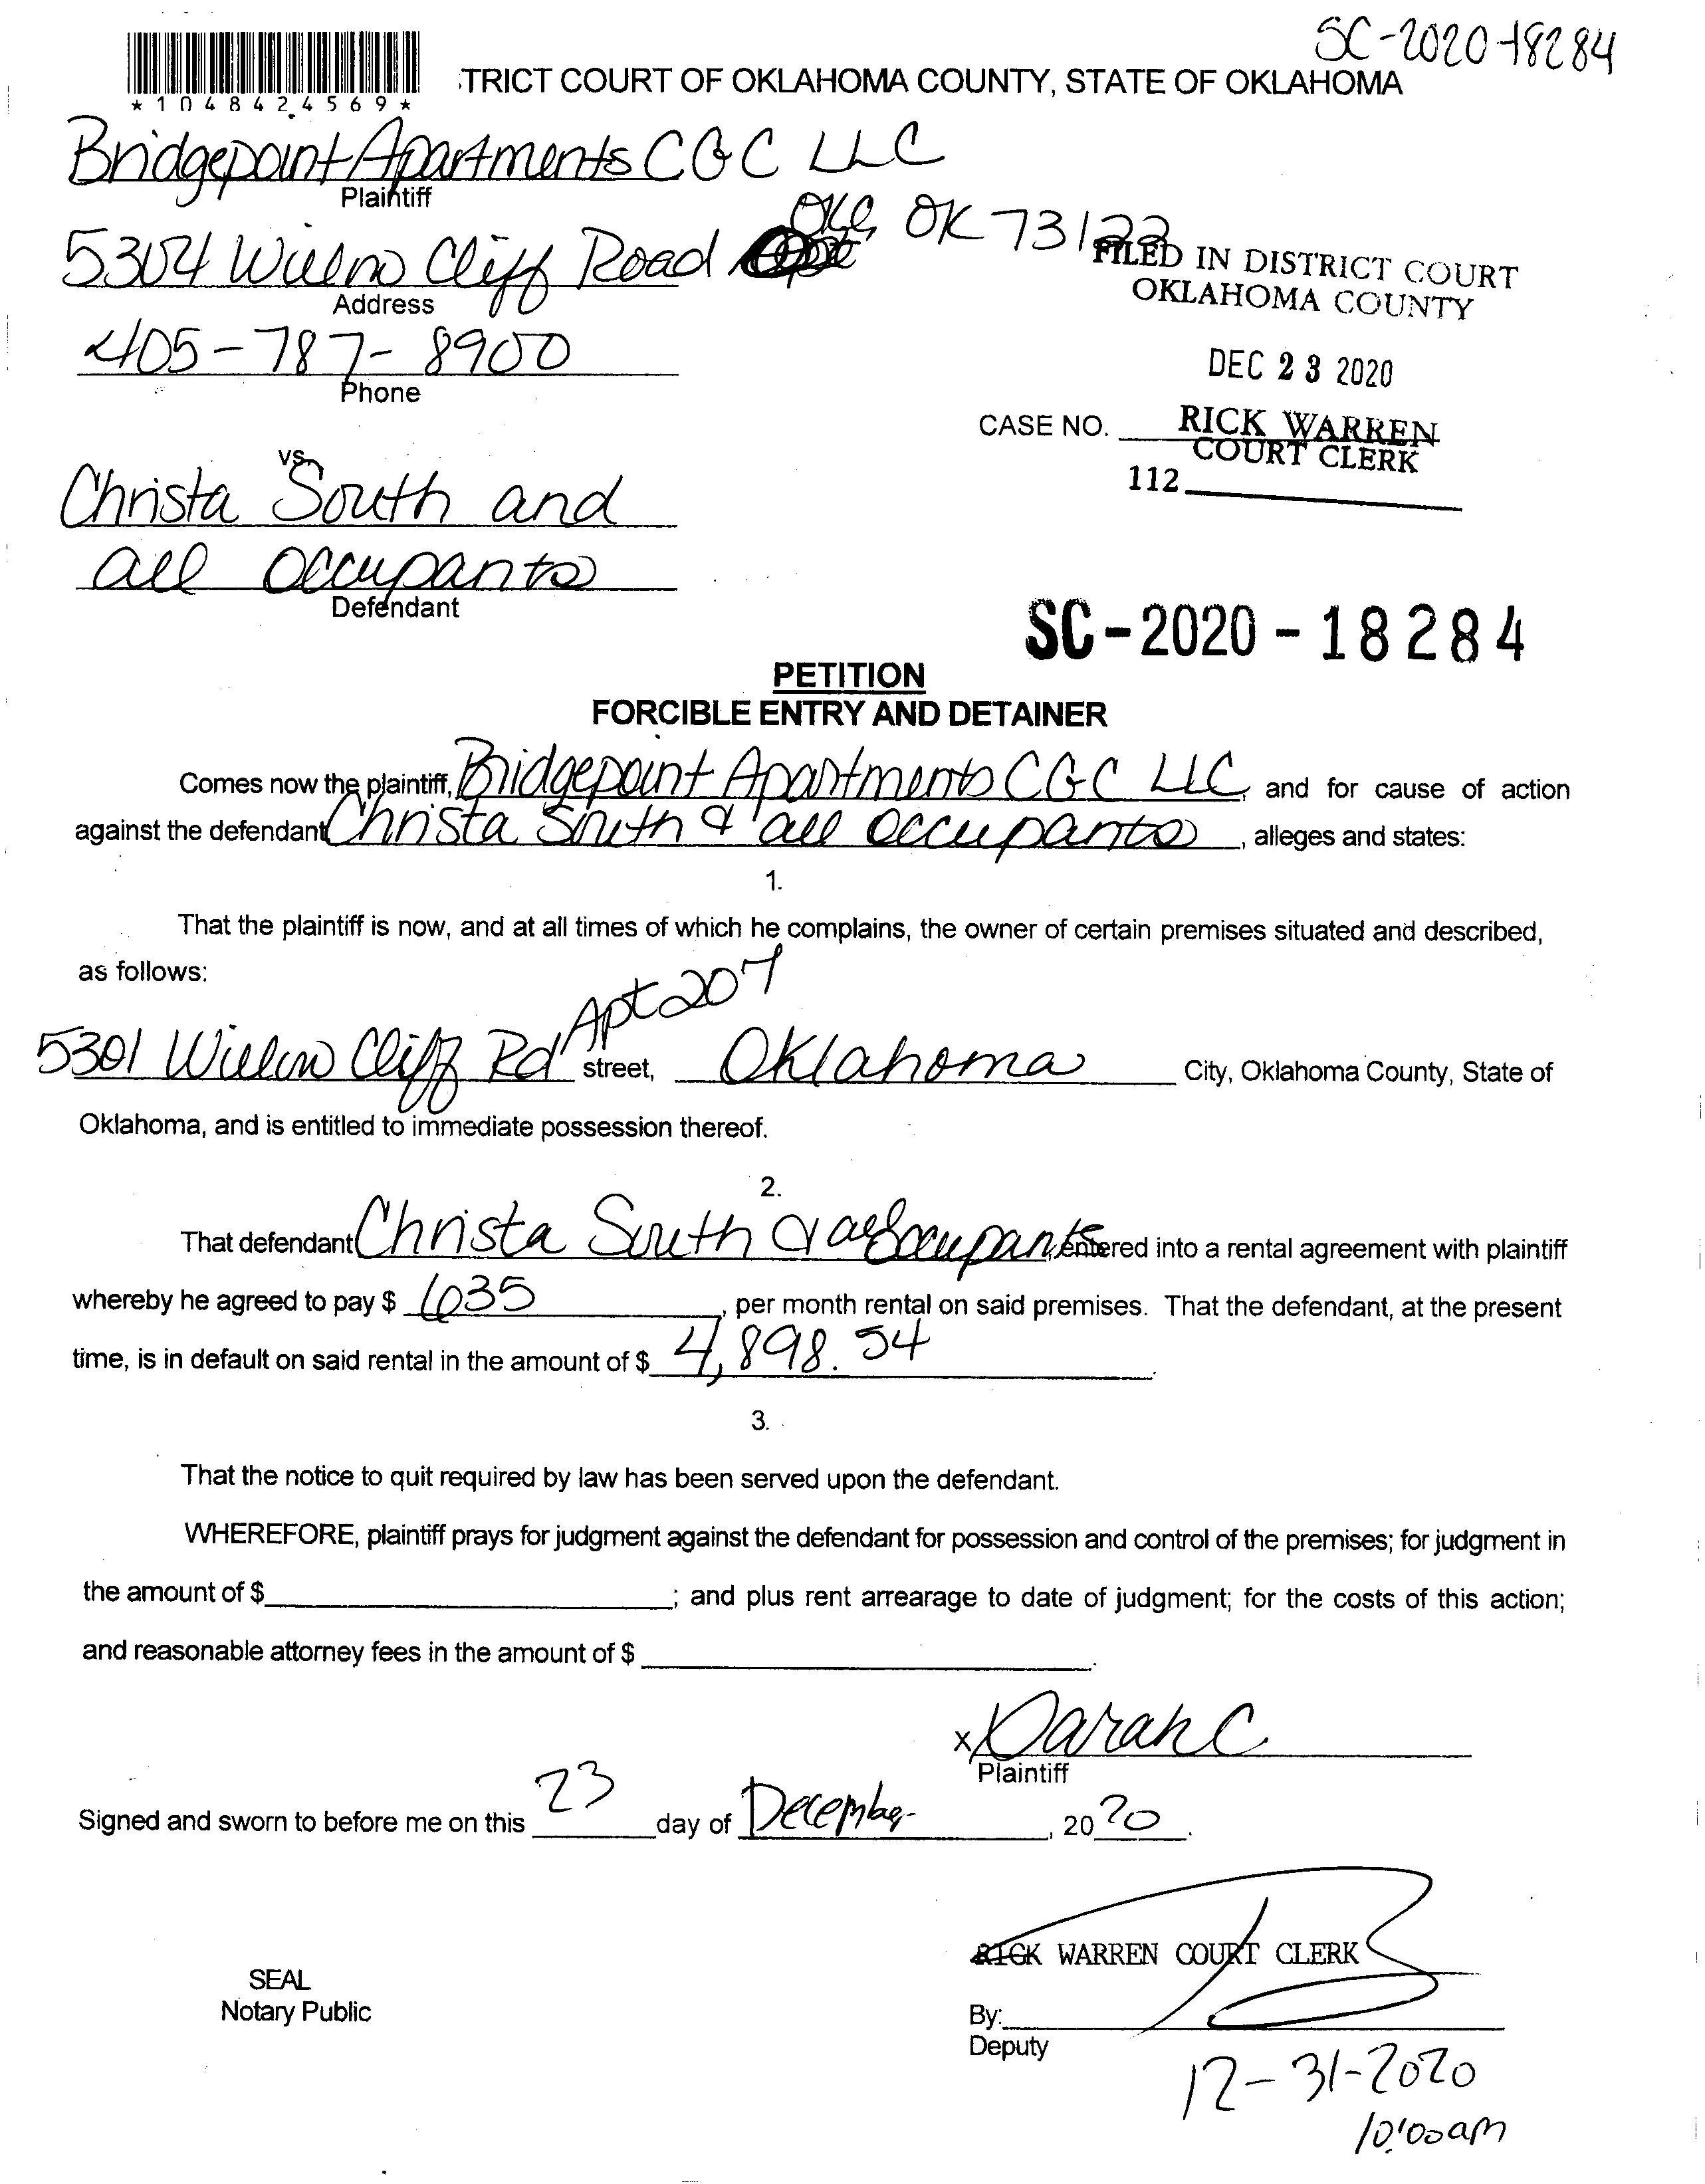 SC-2020-18284
*1048424569*
TRICT COURT OF OKLAHOMA COUNTY, STATE OF OKLAHOMA
Bridgepoint Apartments CGC LLC
Plaintiff
OKC, OK 73122
5304 Willow Cliff Road
Address
FILED IN DISTRICT COURT
OKLAHOMA COUNTY
405-787-8900
Phone
DEC 23 2020
CASE NO.
RICK WARREN
COURT CLERK
112
vs.
Christa South and
all occupants
Defendant
SC-2020-18284
PETITION
FORCIBLE ENTRY AND DETAINER
Comes now the plaintiff, Bridgepoint Apartments CGC LLC, and for cause of action
against the defendant Christa South & all occupants, alleges and states:
1.
That the plaintiff is now, and at all times of which he complains, the owner of certain premises situated and described,
as follows:
5301 Willow Cliff Rd Apt 207 street, Oklahoma City, Oklahoma County, State of
Oklahoma, and is entitled to immediate possession thereof.
2.
That defendant Christa South & all occupants, entered into a rental agreement with plaintiff
whereby he agreed to pay $ 635, per month rental on said premises. That the defendant, at the present
time, is in default on said rental in the amount of $ 4,898.54.
3.
That the notice to quit required by law has been served upon the defendant.
WHEREFORE, plaintiff prays for judgment against the defendant for possession and control of the premises; for judgment in
the amount of $; and plus rent arrearage to date of judgment; for the costs of this action;
and reasonable attorney fees in the amount of $.
x
Plaintiff
Signed and sworn to before me on this 23 day of December, 2020.
RICK WARREN COURT CLERK
SEAL
Notary Public
By:
Deputy
12-31-2020
10:00am